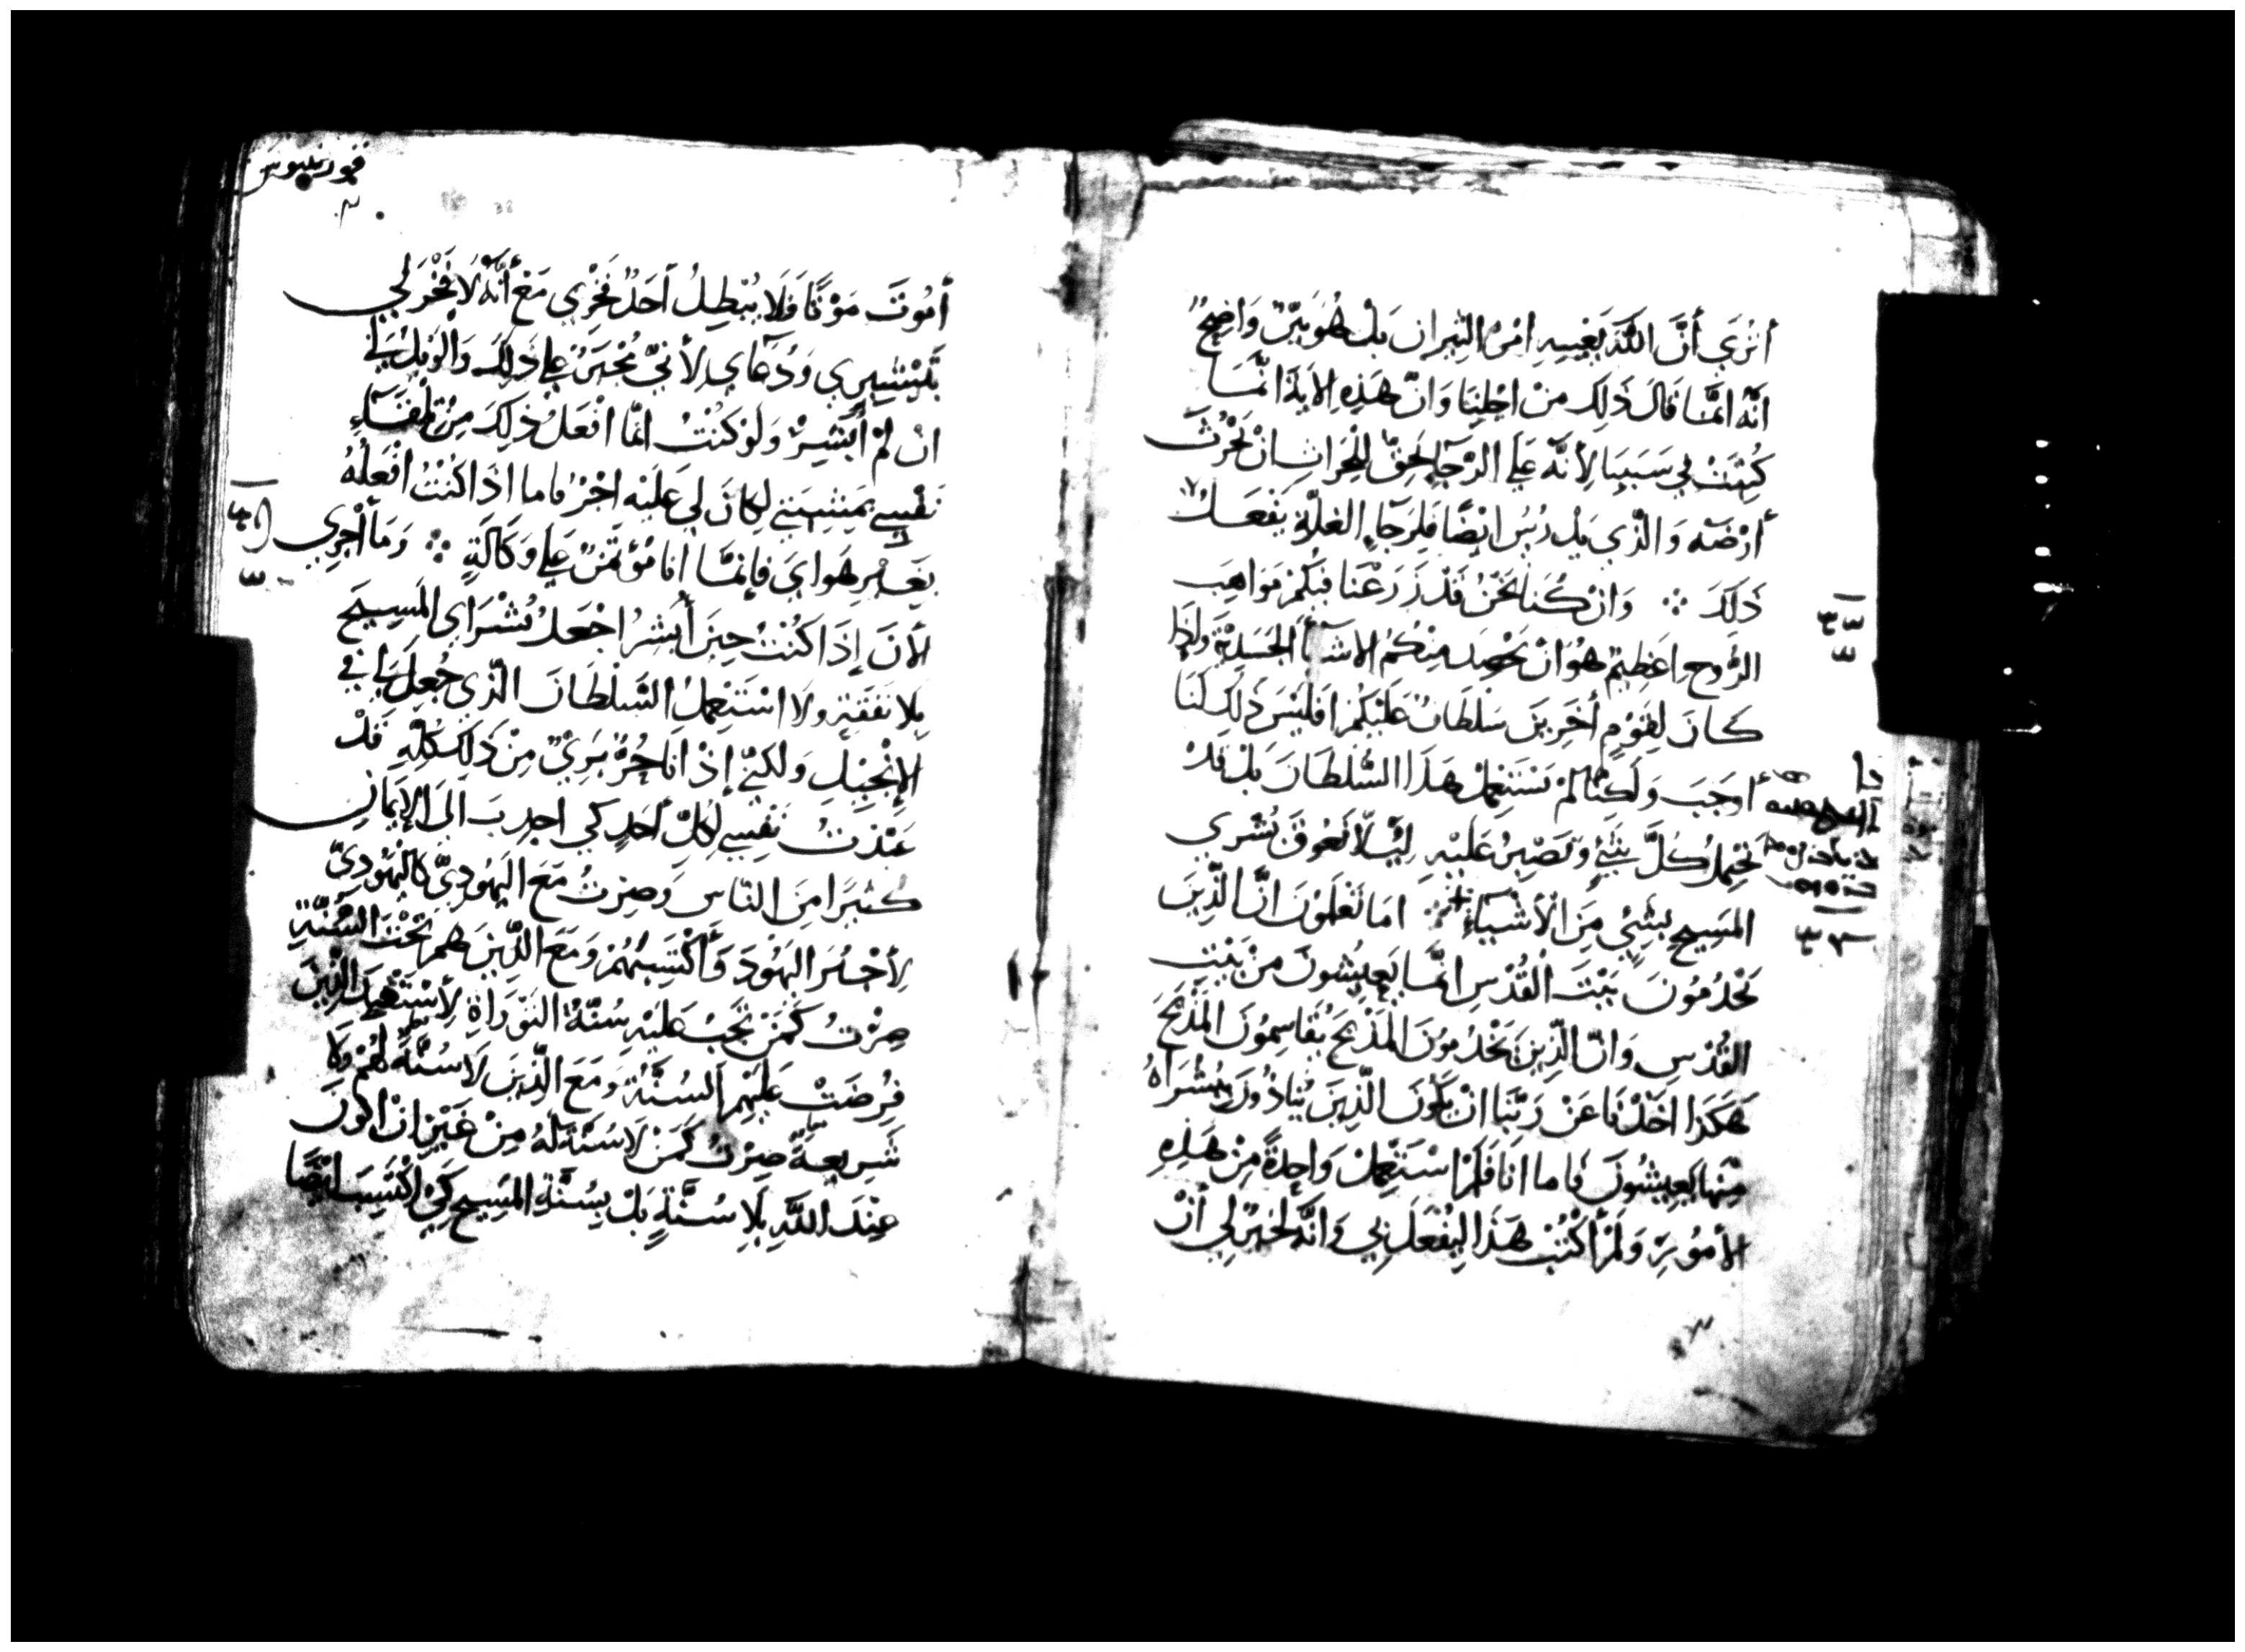 أتُرَي أنَّ اللَّهَ يَعْنِيهِ امْرُ الثِيرانِ بَلْ هُوَ بَيِّنٌ وَاضِحٌ
انَّه انَّمَا قَالَ ذَلِكَ مِنْ اجْلِنَا وَانّ هَذِهِ الايَةَ انَّمَا
كُتِبَتْ بِي سَبَبِنَا لأنَّه عَلَي الرَّجَا يَحِقُّ لِلحَراثِ انْ يَحْرُثَ
أرْضَهُ وَالَّذِي يَدْرُسُ ايْضًا فَلِرَجَاءِ الغلّةِ يَفْعَلُ
ذَلَكَ ⁘ وَانْ كُنَا نَحْنُ قَدْ زَرَعْنَا فيكُمْ مَوَاهِبَ
الرُّوحِ اعَظِيمٌ هُوَ انْ نَحْصِدَ مِنْكُم الاشيَاَ الجَسَدِيَّةَ وَاِذَا
كَانَ لِقَوْمٍ أخَرِينَ سَلْطَانٌ عَلَيْكُمْ افَلَيْسَ ذَلَكَ لَنَا
أوجَبَ وَلَكنّا لَمْ نَسْتَعْمِلْ هَذَا السُّلطَانَ بَلْ قَدْ
نَحْتَمِلُ كُلَّ شَيْءٍ وَنَصْبِرُ عَلَيْهِ لِئَلَّا نَعُوقَ بُشْرَي
المَسِيحِ بِشَيْءٍ مِنَ الأشْيَاءِ ⁘ امَا تَعْلَمُونَ انَّ الَّذِينَ
يَخْدُمُونَ بَيْتَ القُدْسِ انَّمَا يَعِيشُونَ مِنْ بَيْتِ
القُدْسِ وَانّ الَّذِينَ يَخْدُمُونَ المَذْبَحَ يُقَاسِمُونَ المَذْبَحَ
هَكَذَا اخَذْنَا عَنْ رَبِّنَا انْ يَكُونَ الَّذِينَ يُنَادُونَ بِبُشْرَاهُ
مِنْهَا يَعِيشُونَ فَاما انَا فَلَمْ اسْتَعْمِلْ وَاحِدَةً مِنْ هَذِهِ
الأمُورِ وَلَمْ أكْتُبْ هَذَا لِيُفْعَلَ بِي وَانَّهُ لَخَيْرٌ لِي أنْ
قورنتيوس
أمُوتَ مَوْتًا وَلَا يُبْطِلُ أحَدٌ فَخْرِي مَعَ أنَّهُ لَا فَخْرَ لِي
بِتَبْشِيرِي وَدُعَاي لأنّي مُجْبَرٌ عَلي ذَلِكَ وَالوَيْلُ لِي
انْ لَمْ أبَشِّرْ وَلَوْ كُنْتُ انّمَا افْعَلُ ذَلِكَ مِنْ تِلْقَاءِ
نَفْسِي بِمَشِيَّتِي لكَانَ لِي عَلَيْهِ اجْرٌ فَاما اذَا كُنْتُ افْعَلُهُ
بِغَيْرِ هَوَايَ فَانَّمَا أنَا مُؤْتَمَنٌ عَلي وَكَالَةٍ ⁘ وَمَا أجْرِي
لأنَ إذَا كُنْتُ حِينَ أبَشِّرُ اجْعَلُ بُشْرَاي المَسِيحِ
بِلا نَفَقَةٍ وَلا اسْتَعْمِلُ السُّلْطَانَ الَّذِي جُعِلَ لِي فِي
الإنْجِيلِ وَلكنّي إذْ انَا حُرٌّ بَرِيٌ مِنْ ذَلَكَ كُلِّهِ قَدْ
عَبَّدْتُ نَفْسِي لِكُلِّ أحَدٍ كي اجدبَ الَي الإيمَانِ
كَثِيرًا مِنَ النّاسِ وَصِرْتُ مَعَ اليَهُودِيِّ كاليَهُودِيِّ
لأجْتَرَّ اليَهُودَ وَأكْتَسِبُهُمْ وَمَعَ الَّذِينَ هم تَحْتَ السُّنَّةِ
صِرْتُ كَمَنْ تَجِبُ عَلَيْهِ سُنَّةُ التَوْرَاةِ لأسْتَفِيدَ الَّذِينَ
فُرِضَتْ عَلَيْهِم السُنَّةُ وَمَعَ الَّذِينَ لَا سُنَّةَ لَهُمْ وَلَا
شَرِيعَةً صِرْتُ كَمَنْ لَا سُنَّةَ لَهُ مِنْ غَيْرِ انْ اكُونَ
عِنْدَ اللَّهِ بِلَا سُنَّةٍ بَلْ بِسُنَّةِ المَسِيحِ كَي اكْتَسِبَ ايْضًا